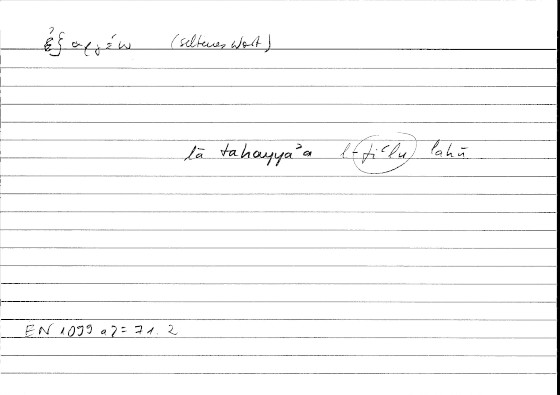 ἐξαργέω (seltenes Wort)
lā tahayyaʾa l-fiʿlu lahū
EN 1099 a2 = 71.2